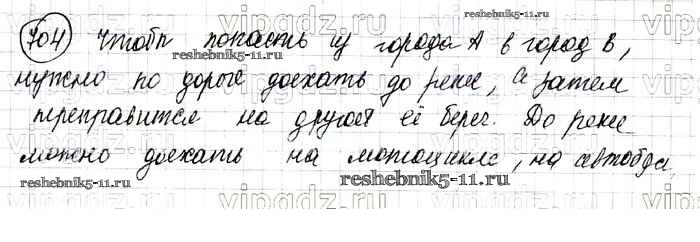 704 Чтобы попасть из города А в город В,
reshebnik5-11.ru
нужно по дороге доехать до реки, а затем
переправится на другой её берег. До реки
можно доехать на мотоцикле, на автобусе
reshebnik5-11.ru
reshebnik5-11.ru
vipgdz.ru